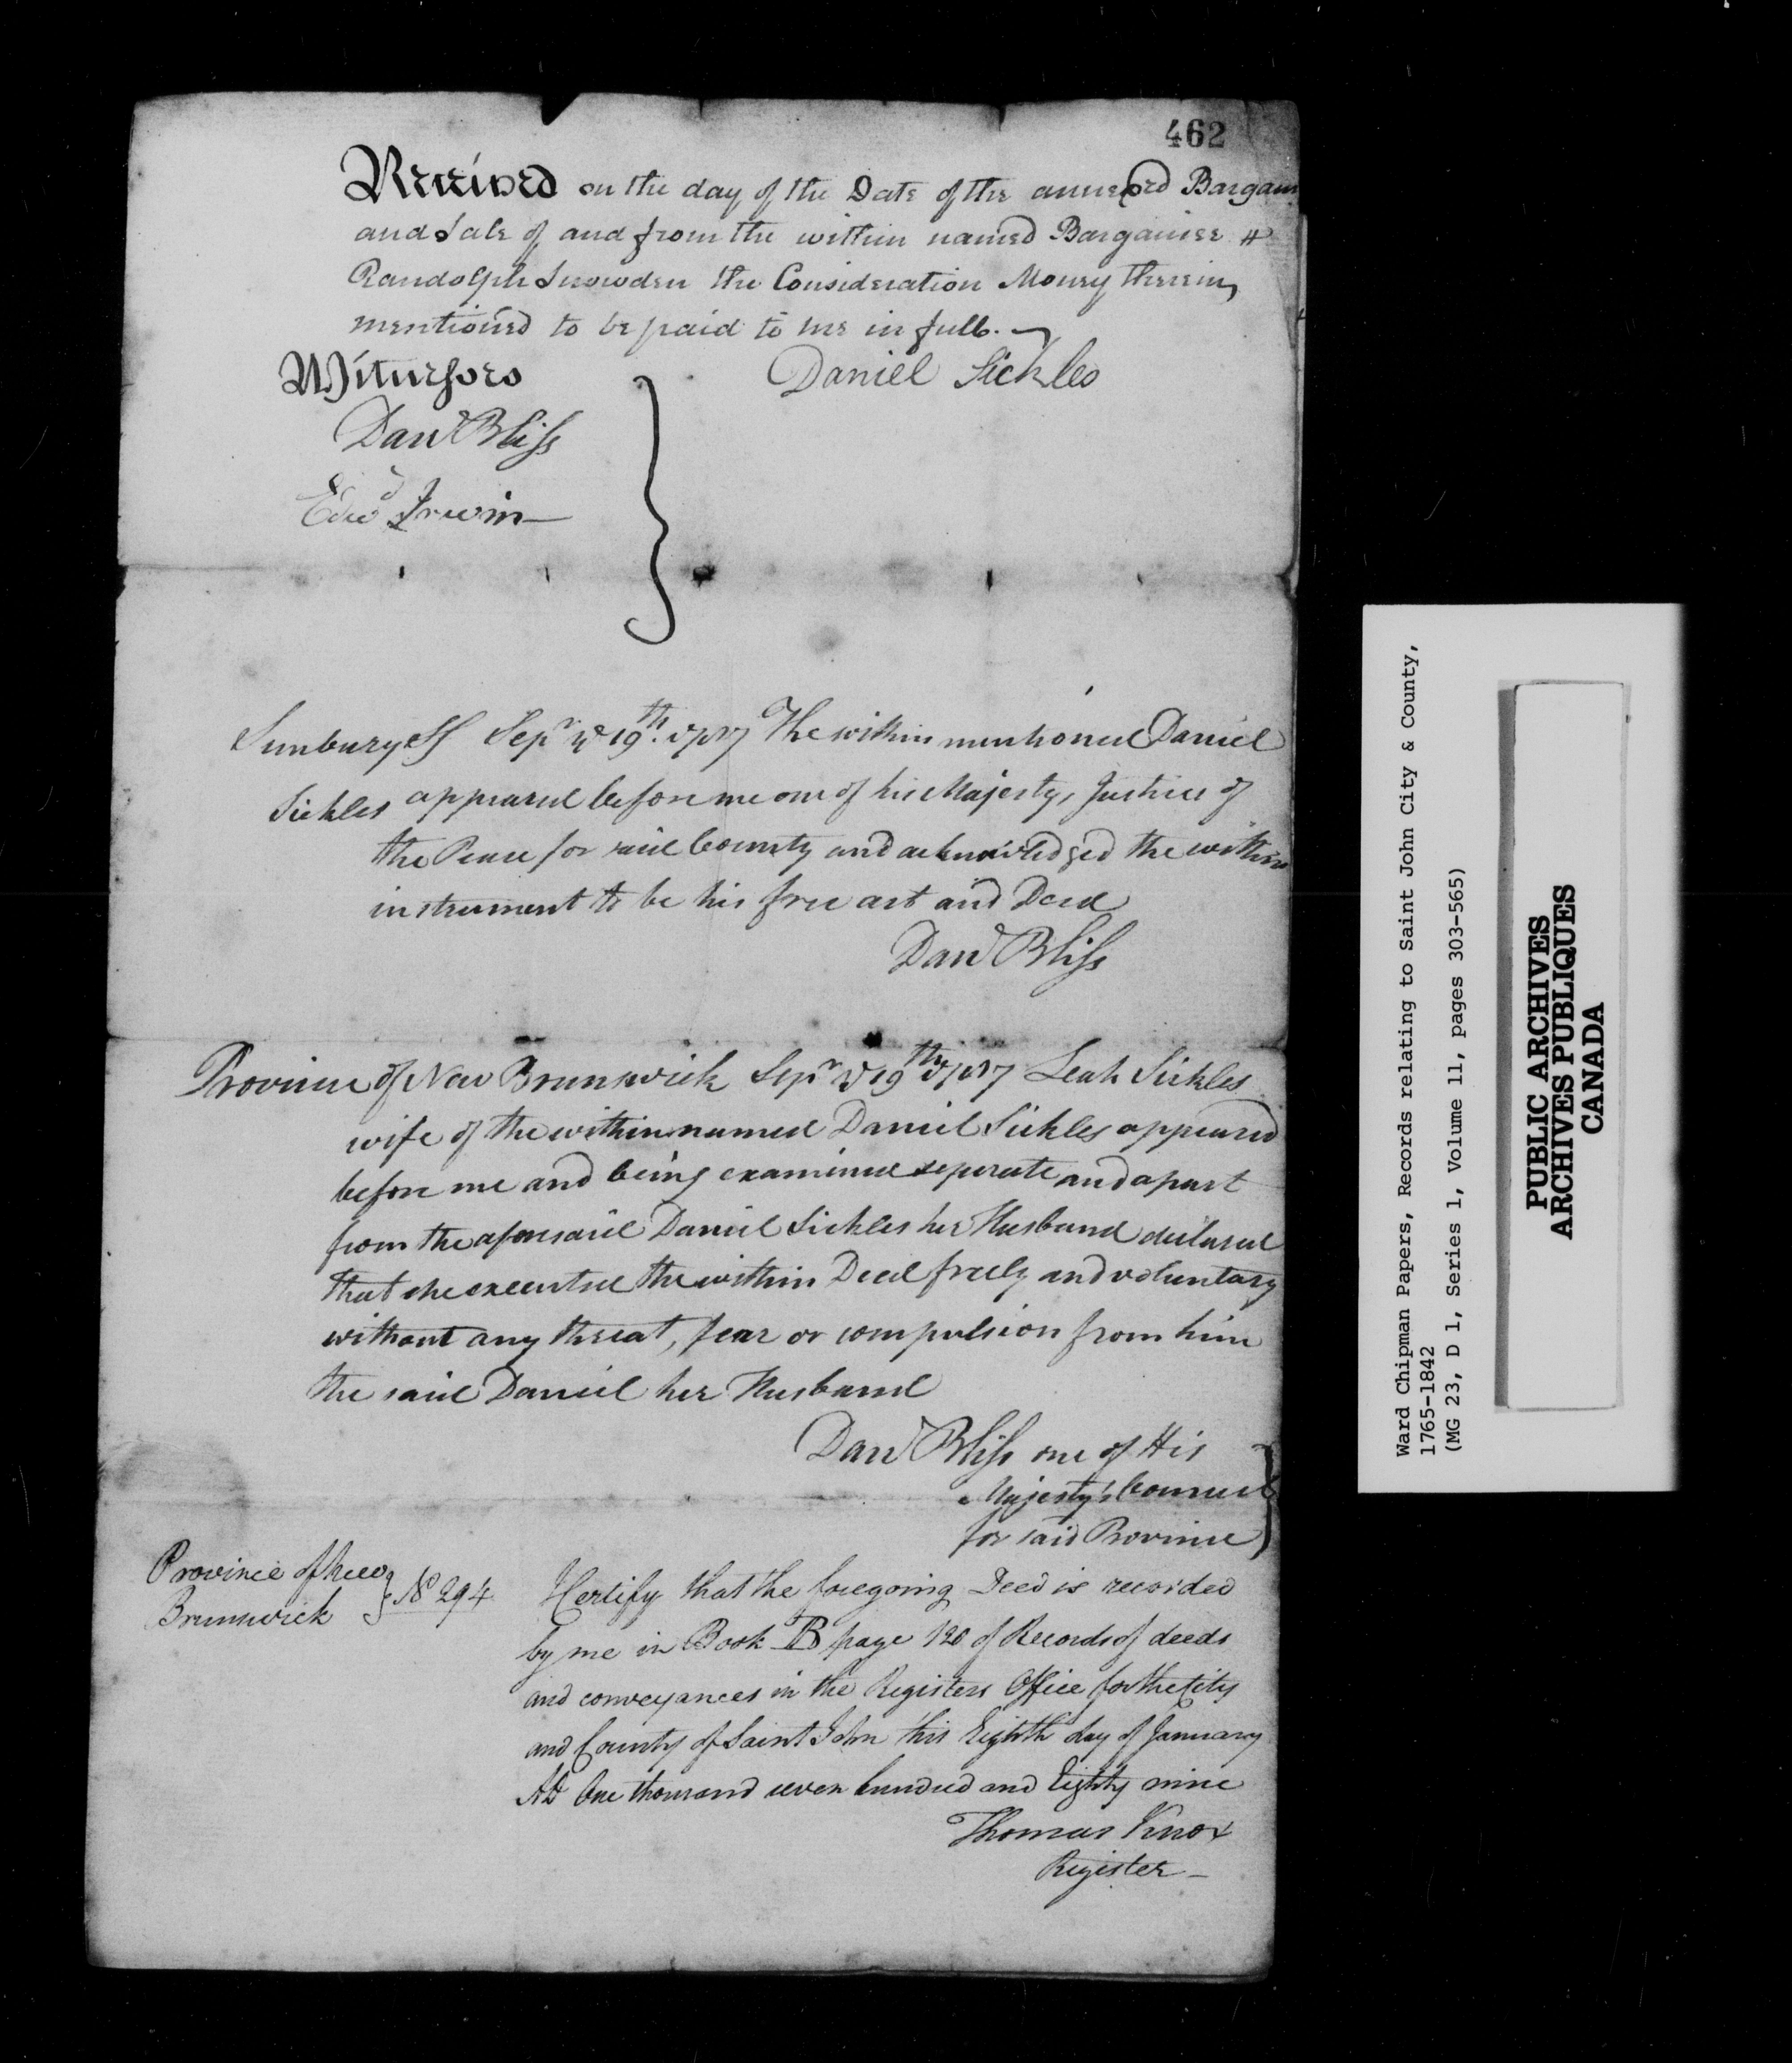 462
Received on the day of the Date of the annexed Bargain
and Sale of and from the within named Bargainee #
Randolph Snowden the Consideration Money therein
mentioned to be paid to me in full.
Witnesses
Daniel Sickles
Danl Bliss
Edwd Irwin
Sunbury Ss Sepr 19th. 1787 The within mentioned Daniel
Sickles appeared before me one of his Majestys Justices of
the Peace for said County and acknowledged the within
instrument to be his free act and Deed
Danl Bliss
Province of New Brunswick Sepr 19th 1787 Leah Sickles
wife of the within named Daniel Sickles appeared
before me and being examined seperate and apart
from the aforesaid Daniel Sickles her Husband declared
that she executed the within Deed freely and voluntary
without any threat, fear or compulsion from him
the said Daniel her Husband
Danl Bliss one of His
Majesty's Council
for said Province
Province of New
Brunswick
No 294
I Certify that the foregoing Deed is recorded
by me in Book B page 120 of Records of deeds
and conveyances in the Registers Office for the City
and County of Saint John this Eighth day of January
AD One thousand seven hundred and Eighty nine
Thomas Knox
Register
Ward Chipman Papers, Records relating to Saint John City & County,
1765-1842
(MG 23, D 1, Series 1, Volume 11, pages 303-565)
PUBLIC ARCHIVES
ARCHIVES PUBLIQUES
CANADA